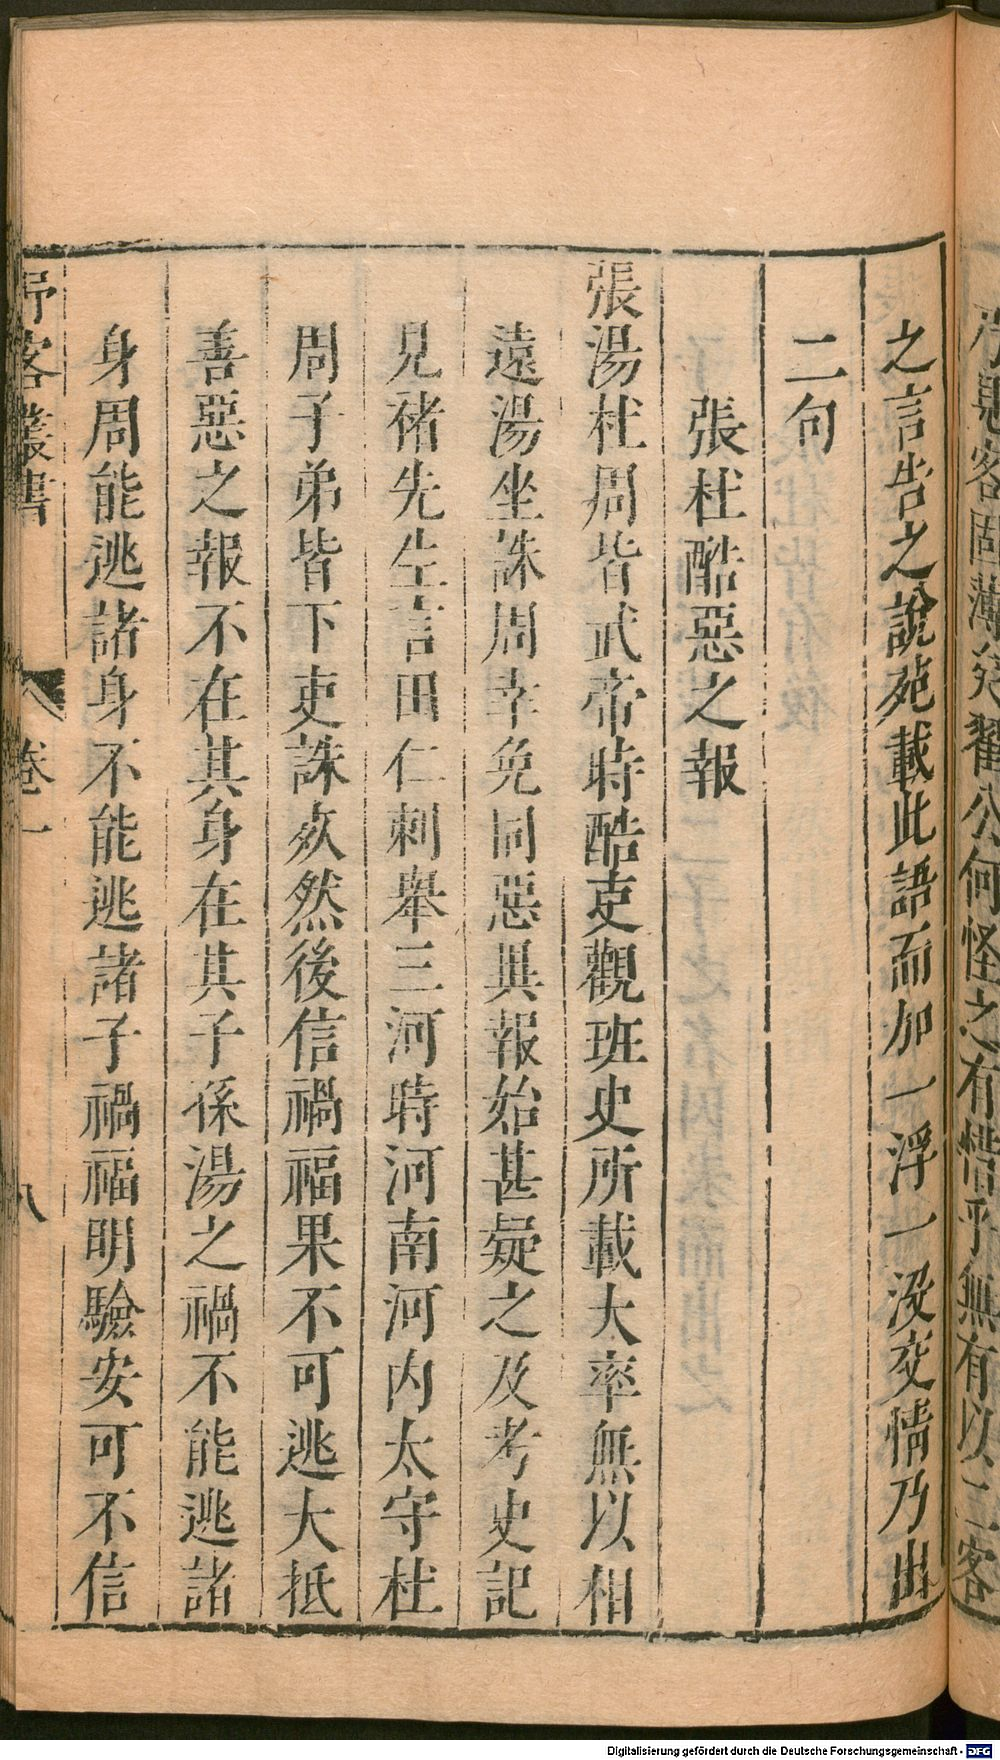 客固薄矣翟公何怪之有惜乎無有以二客
之言告之說苑載此語而加一浮一沒交情乃出
二句
張杜酷惡之報
張湯杜周皆武帝時酷吏觀班史所載大率無以相
遠湯坐誅周幸免同惡異報始甚疑之及考史記
見褚先生言田仁刺舉三河時河南河內太守杜
周子弟皆下吏誅死然後信禍福果不可逃大抵
善惡之報不在其身在其子孫湯之禍不能逃諸
身周能逃諸身不能逃諸子禍福明驗安可不信
野客叢書 卷一 八
Digitalisierung gefördert durch die Deutsche Forschungsgemeinschaft - DFG